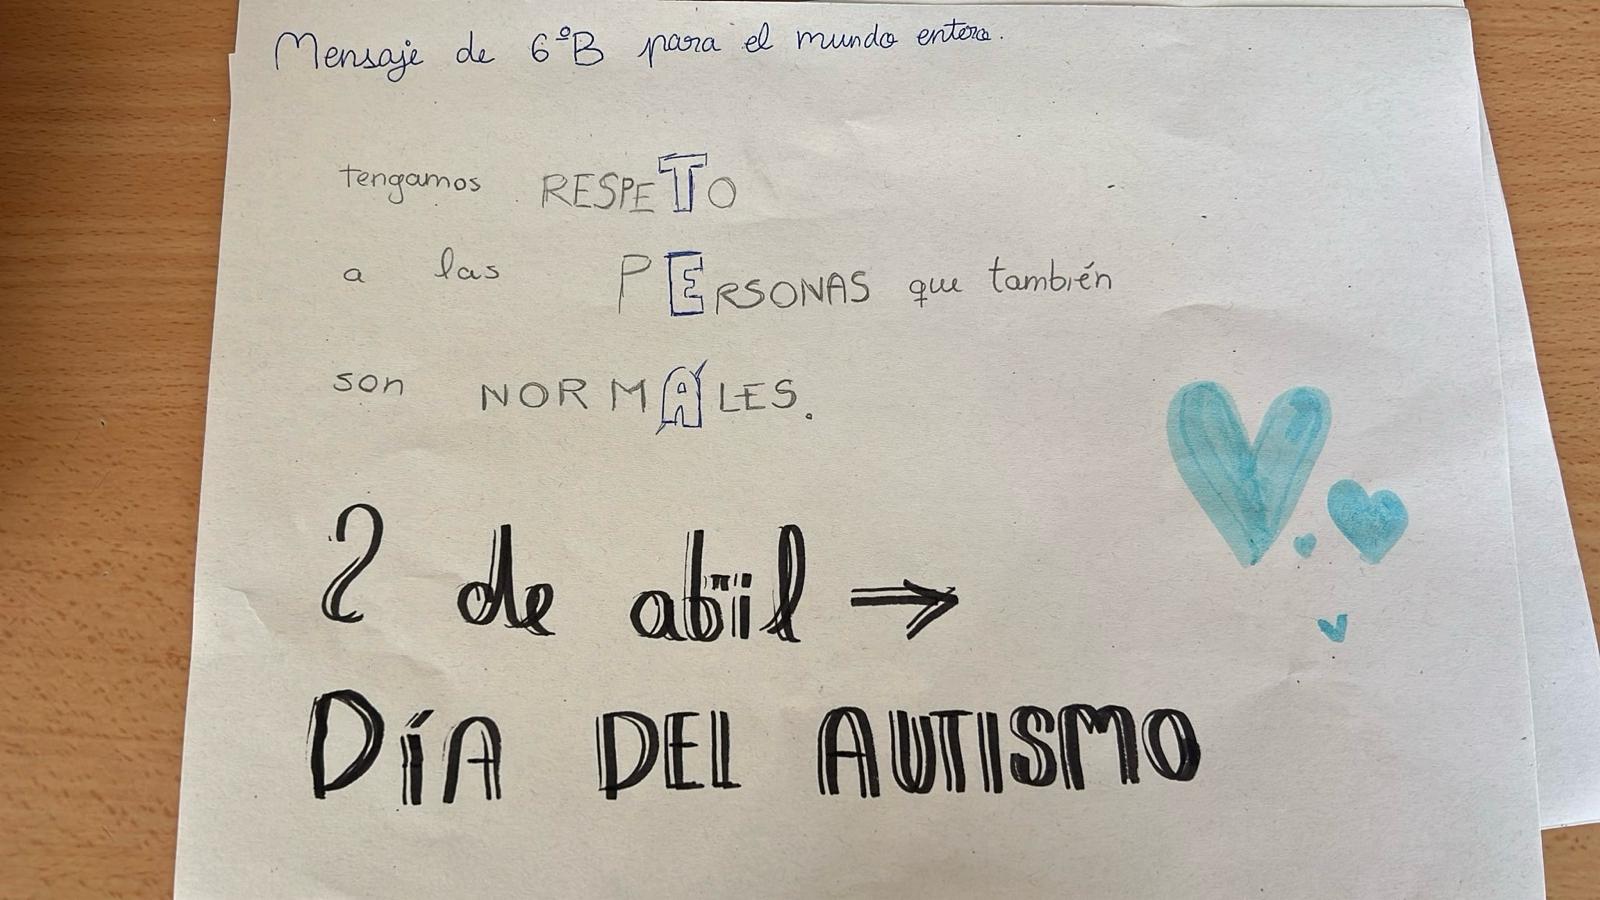 Mensaje de 6ºB para el mundo entero.
tengamos RESPETO
a las PERSONAS que también
son NORMALES.
2 de abril →
DÍA DEL AUTISMO